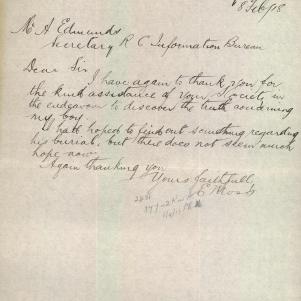 8 Feb/18
Mr A Edmunds
Secretary R C Information Bureau
Dear Sir
I have again to thank you for
the kind assistance of your Society in
the endeavor to discover the truth concerning
my boy
had hoped to find out something regarding
his burial, but there does not seem much
hope now
Again thanking you
Yours faithfully
E Moss